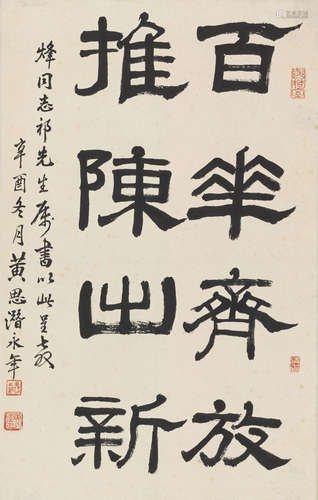 百花齊放
推陳出新
烽同志祁先生属書以此呈教
辛酉冬月黄思潜永年